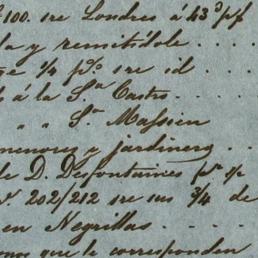 100. sre Londres á 43 d pf
la y remitídole . . . .
ge 1/4 p.º sre id . . . .
á la S.ª Castro . . . .
" " S.ª Massien
menores y jardinero . .
de D. Desfontaines p.ª s/c
N.º 202/212 sre sus 3/4 de
en Negrillas . . . .
que le corresponden